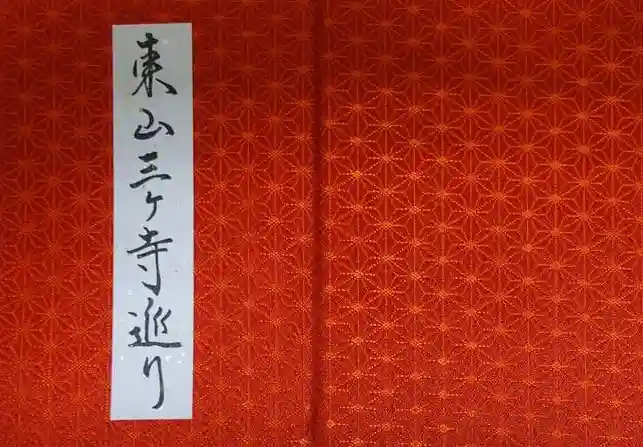 東山三ヶ寺巡り